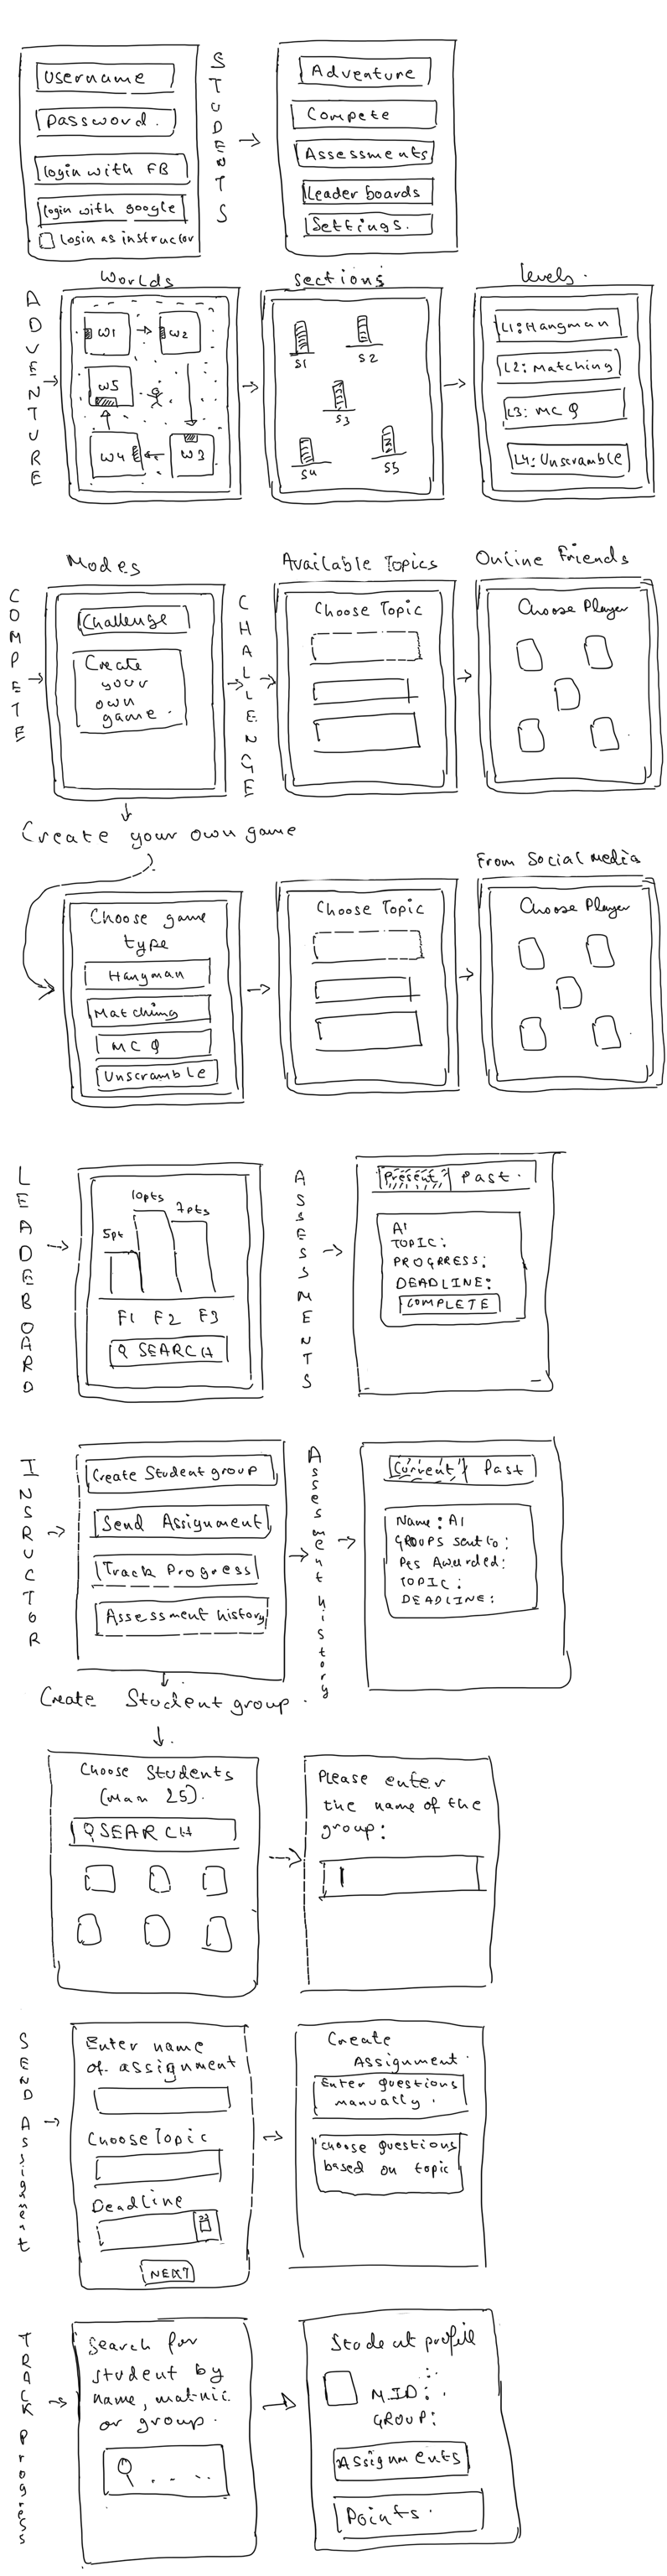 Username
Password.
login with FB
login with google
Login as instructor
STUDENTS
Adventure
Compete
Assessments
Leader boards
Settings.
ADVENTURE
Worlds
W1
W2
W5
W4
W3
Sections
S1
S2
S3
S4
S5
levels.
L1: Hangman
L2: Matching
L3: MCQ
L4: Unscramble
COMPETE
Modes
Challenge
Create
your
own
game.
CHALLENGE
Available Topics
Choose Topic
Online Friends
Choose Player
Create your own game
Choose game
type
Hangman
Matching
MCQ
Unscramble
Choose Topic
From Social media
Choose Player
LEADEBOARD
10pts
7pts
5pt
F1 F2 F3
Q SEARCH
ASSESSMENTS
Present
Past.
A1
TOPIC:
PROGRRESS:
DEADLINE:
COMPLETE
INSRUCTOR
Create Student group
Send Assignment
Track Progress
Assessment history
Assessment history
Current
Past
Name: A1
GROUPS sent to:
Pts Awarded:
TOPIC:
DEADLINE:
Create Student group.
Choose Students
(Max 25).
Q SEARCH
Please enter
the name of the
group:
SEND Assignment
Enter name
of assignment
Choose Topic
Deadline
23
NEXT
Create
Assignment.
Enter questions
manually.
Choose questions
based on topic
TRACK Progress
Search for
student by
name, matric
or group.
Q . . - .
Student profile
M.ID:
GROUP:
Assignments
Points.